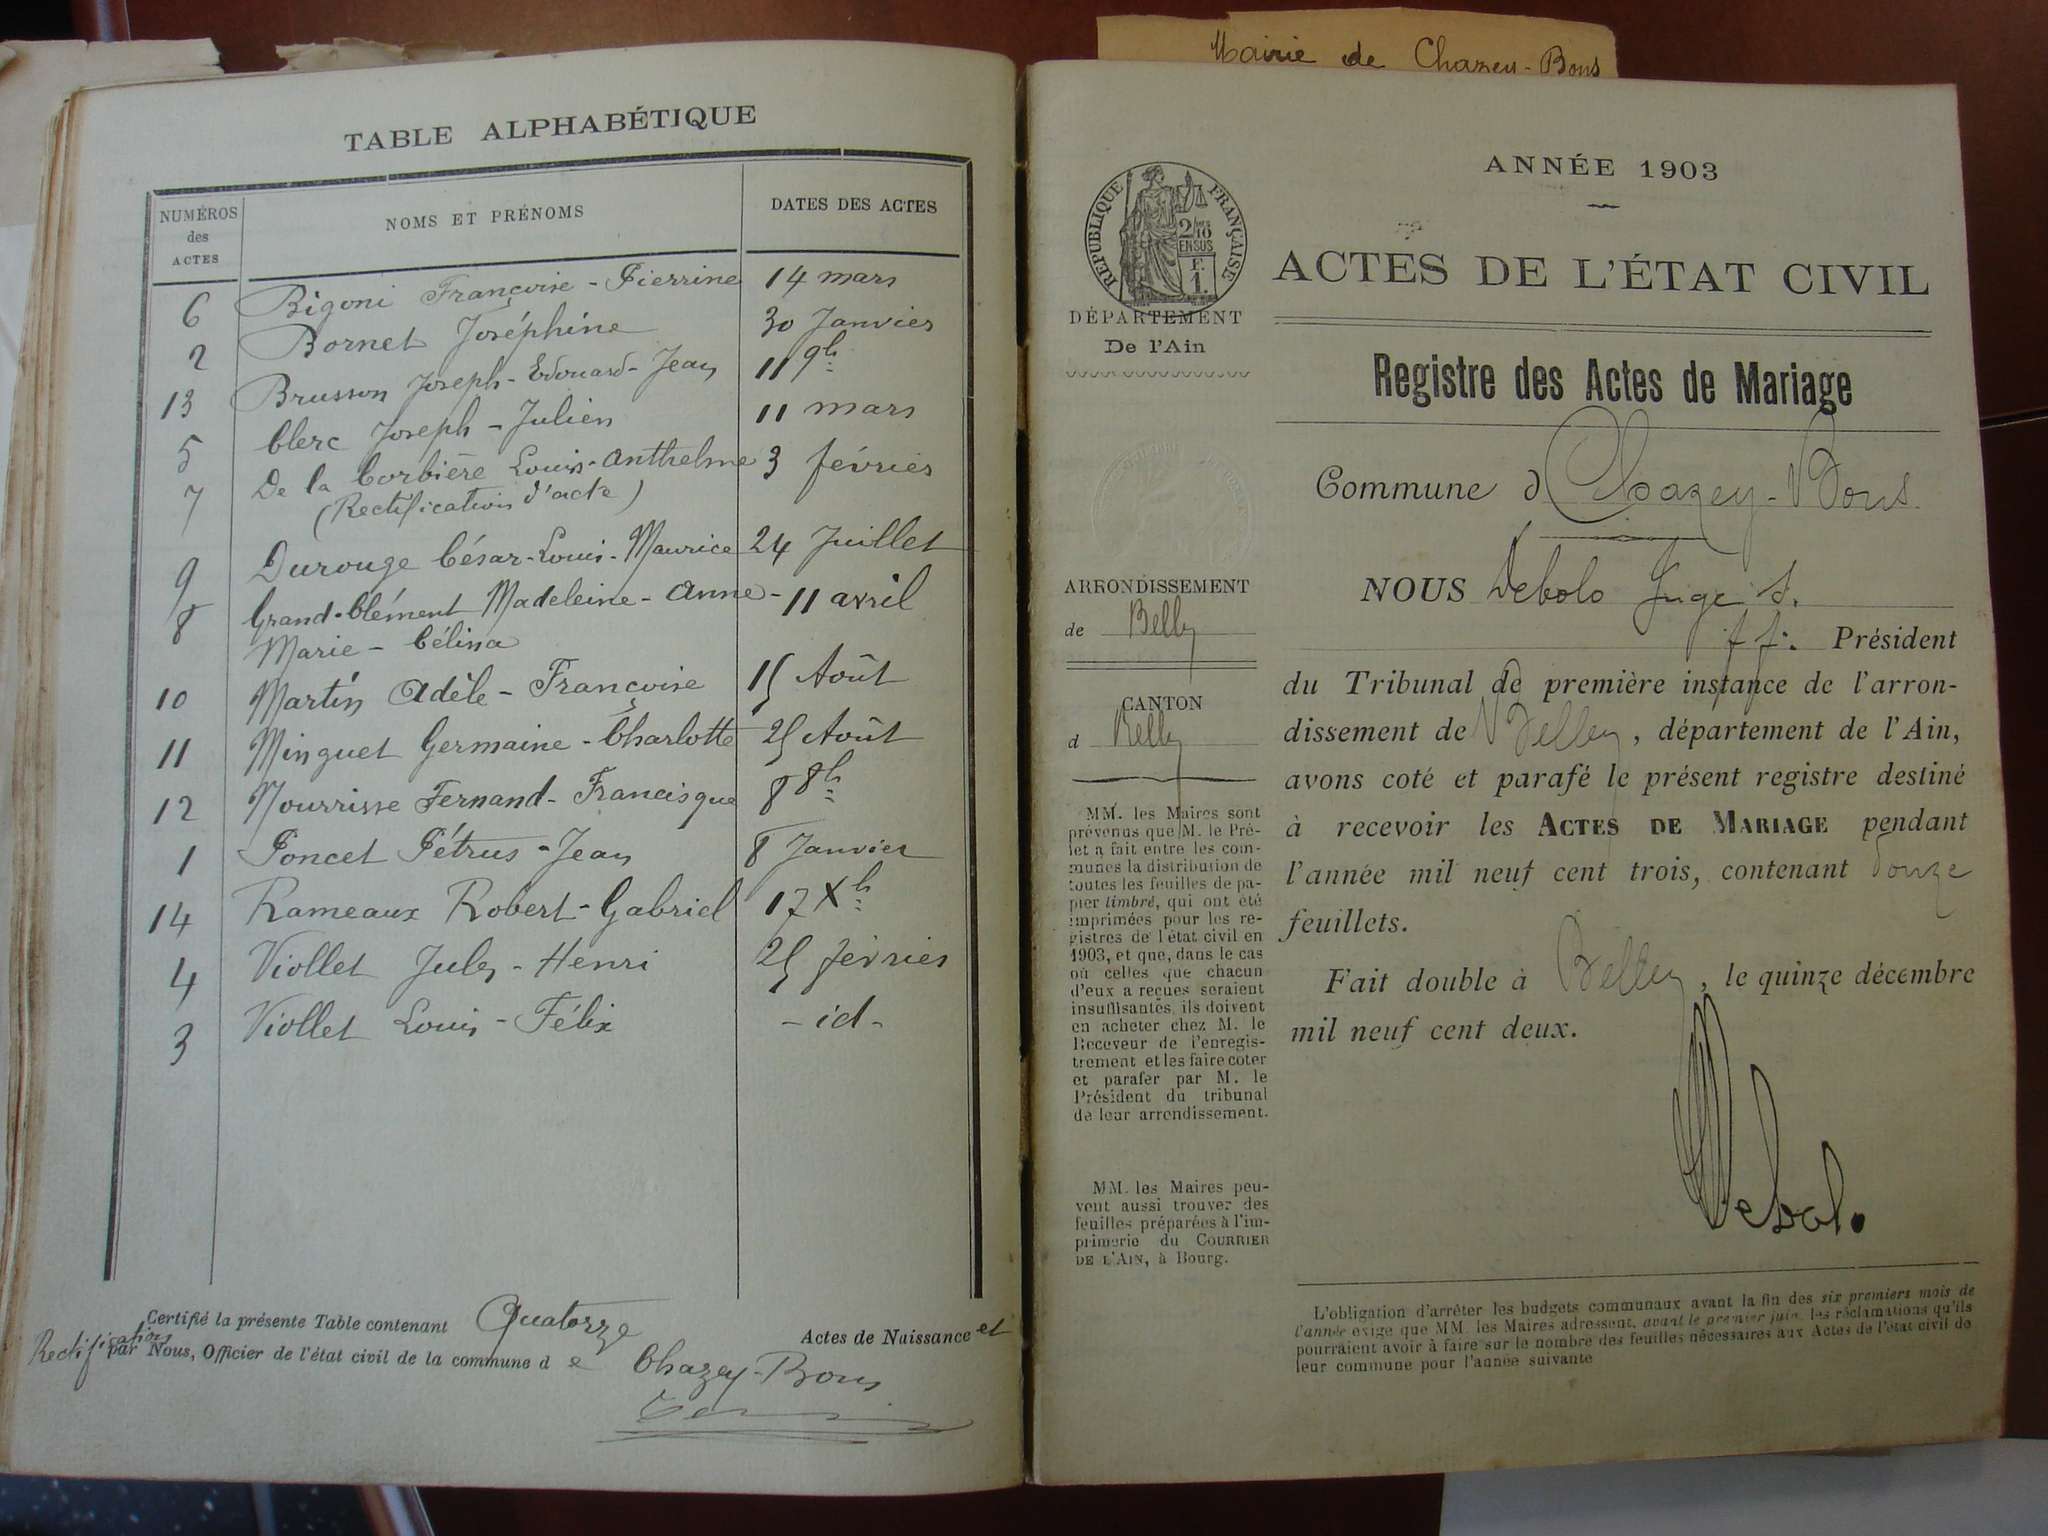 Mairie de Chazey-Bons
TABLE ALPHABÉTIQUE
NUMÉROS des ACTES
NOMS ET PRÉNOMS
DATES DES ACTES
6 Bigoni Françoise-Pierrine 14 mars
2 Bornet Joséphine 30 Janvier
13 Brusson Joseph-Edouard-Jean 11 9b
5 Clerc Joseph-Julien 11 mars
7 De la Corbière Louis-Anthelme 3 février
(Rectification d'acte)
9 Durouge César-Louis-Maurice 24 Juillet
8 Grand-Clément Madeleine-Anne- 11 avril
Marie-Célina
10 Martin Adèle-Françoise 15 Août
11 Minguet Germaine-Charlotte 25 Août
12 Nourrisse Fernand-Francisque 8 8b
1 Poncet Pétrus-Jean 8 Janvier
14 Rameaux Robert-Gabriel 17 Xb
4 Viollet Jules-Henri 25 février
3 Viollet Louis-Félix -id-
Certifié la présente Table contenant Quatorze Actes de Naissance et
Rectifications
par Nous, Officier de l'état civil de la commune d e Chazey-Bons
ANNÉE 1903
RÉPUBLIQUE FRANÇAISE
2/10 EN SUS
F. 1.
ACTES DE L'ÉTAT CIVIL
DÉPARTEMENT
De l'Ain
Registre des Actes de Mariage
Commune d Chazey-Bons
ARRONDISSEMENT
de Belley
CANTON
d Belley
MM. les Maires sont
prévenus que M. le Pré-
fet a fait entre les com-
munes la distribution de
toutes les feuilles de pa-
pier timbré, qui ont été
imprimées pour les re-
gistres de l'état civil en
1903, et que, dans le cas
où celles que chacun
d'eux a reçues seraient
insuffisantes, ils doivent
en acheter chez M. le
Receveur de l'enregis-
trement et les faire coter
et parafer par M. le
Président du tribunal
de leur arrondissement.
MM. les Maires peu-
vent aussi trouver des
feuilles préparées à l'im-
primerie du COURRIER
DE L'AIN, à Bourg.
NOUS Debolo Juge S.
ff. Président
du Tribunal de première instance de l'arron-
dissement de Belley, département de l'Ain,
avons coté et parafé le présent registre destiné
à recevoir les ACTES DE MARIAGE pendant
l'année mil neuf cent trois, contenant Douze
feuillets.
Fait double à Belley, le quinze décembre
mil neuf cent deux.
Debolo
L'obligation d'arrêter les budgets communaux avant la fin des six premiers mois de
l'année exige que MM. les Maires adressent, avant le premier juin, les réclamations qu'ils
pourraient avoir à faire sur le nombre des feuilles nécessaires aux Actes de l'état civil de
leur commune pour l'année suivante